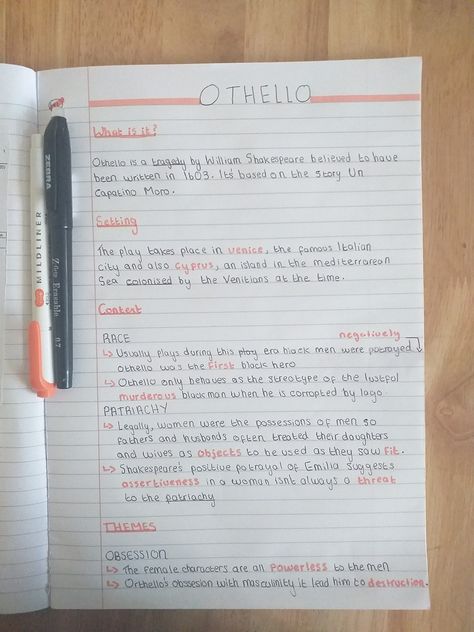 OTHELLO
What is it?
Othello is a tragedy by William Shakespeare believed to have
been written in 1603. Its based on the story Un
Capatino Moro.
Setting
The play takes place in Venice, the famous Italian
city and also Cyprus, an island in the mediterranean
Sea colonised by the Venitians at the time.
Context
RACE
negatively
↳ Usually plays during this play era black men were potrayed
othello was the first black hero
↳ Othello only behaves as the streotype of the lustful
murderous black man when he is corrupted by Iago.
PATRIACHY
↳ Legally, women were the possessions of men so
fathers and husbands often treated their daughters
and wives as objects to be used as they saw fit.
↳ Shakespeare's positive potrayal of Emilia suggests
assertiveness in a woman isnt always a threat
to the patriachy
THEMES
OBSESSION
↳ The female characters are all powerless to the men
↳ Orthello's obssesion with masculinity it lead him to destruction.
ZEBRA
MILDLINER
Erasable
0.7